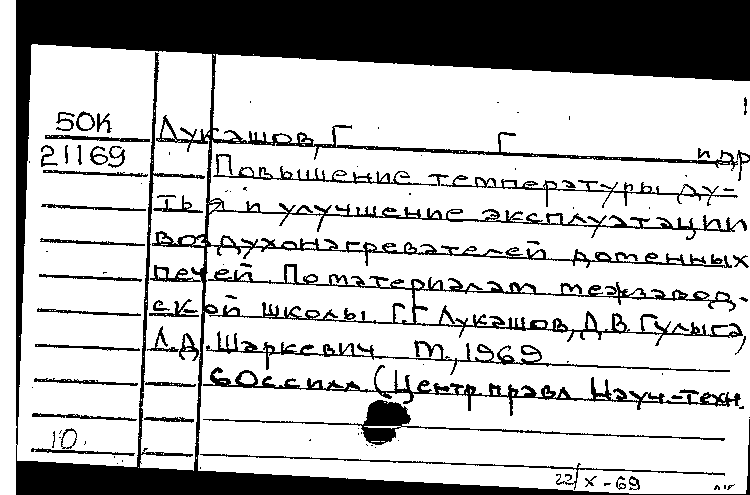 50К
21169
Лукашов, Г Г и др
Повышение температуры ду-
тья и улучшение эксплуатации
воздухонагревателей доменных
печей По материалам межзавод-
ской школы Г.Г Лукашов, Д.В Гулыга,
Л.Д. Шаркевич М, 1969
60с с илл (Центр правл Науч-техн.
10.
22/X-69